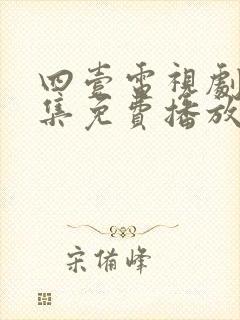 四壹電視劇
集免費播放
宋備峰